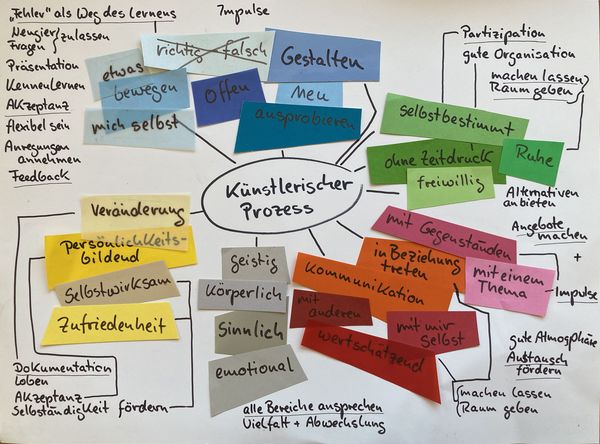 "Fehler" als Weg des Lernens
Neugier
Fragen zulassen
Präsentation
Kennenlernen
Akzeptanz
flexibel sein
Anregungen
annehmen
Feedback
Impulse
richtig falsch
etwas
bewegen
mich selbst
Offen
Gestalten
Neu
ausprobieren
Partizipation
gute Organisation
machen lassen
Raum geben
selbstbestimmt
ohne Zeitdruck
Ruhe
freiwillig
Alternativen
anbieten
Künstlerischer
Prozess
Veränderung
Persönlichkeits-
bildend
Selbstwirksam
Zufriedenheit
Dokumentation
Loben
Akzeptanz
Selbständigkeit fördern
geistig
Körperlich
Sinnlich
emotional
alle Bereiche ansprechen
Vielfalt + Abwechslung
mit Gegenständen
in Beziehung
treten
Kommunikation
mit anderen
mit mir
selbst
wertschätzend
mit einem
Thema
Angebote
machen
+
Impulse
gute Atmosphäre
Austausch
fördern
machen lassen
Raum geben